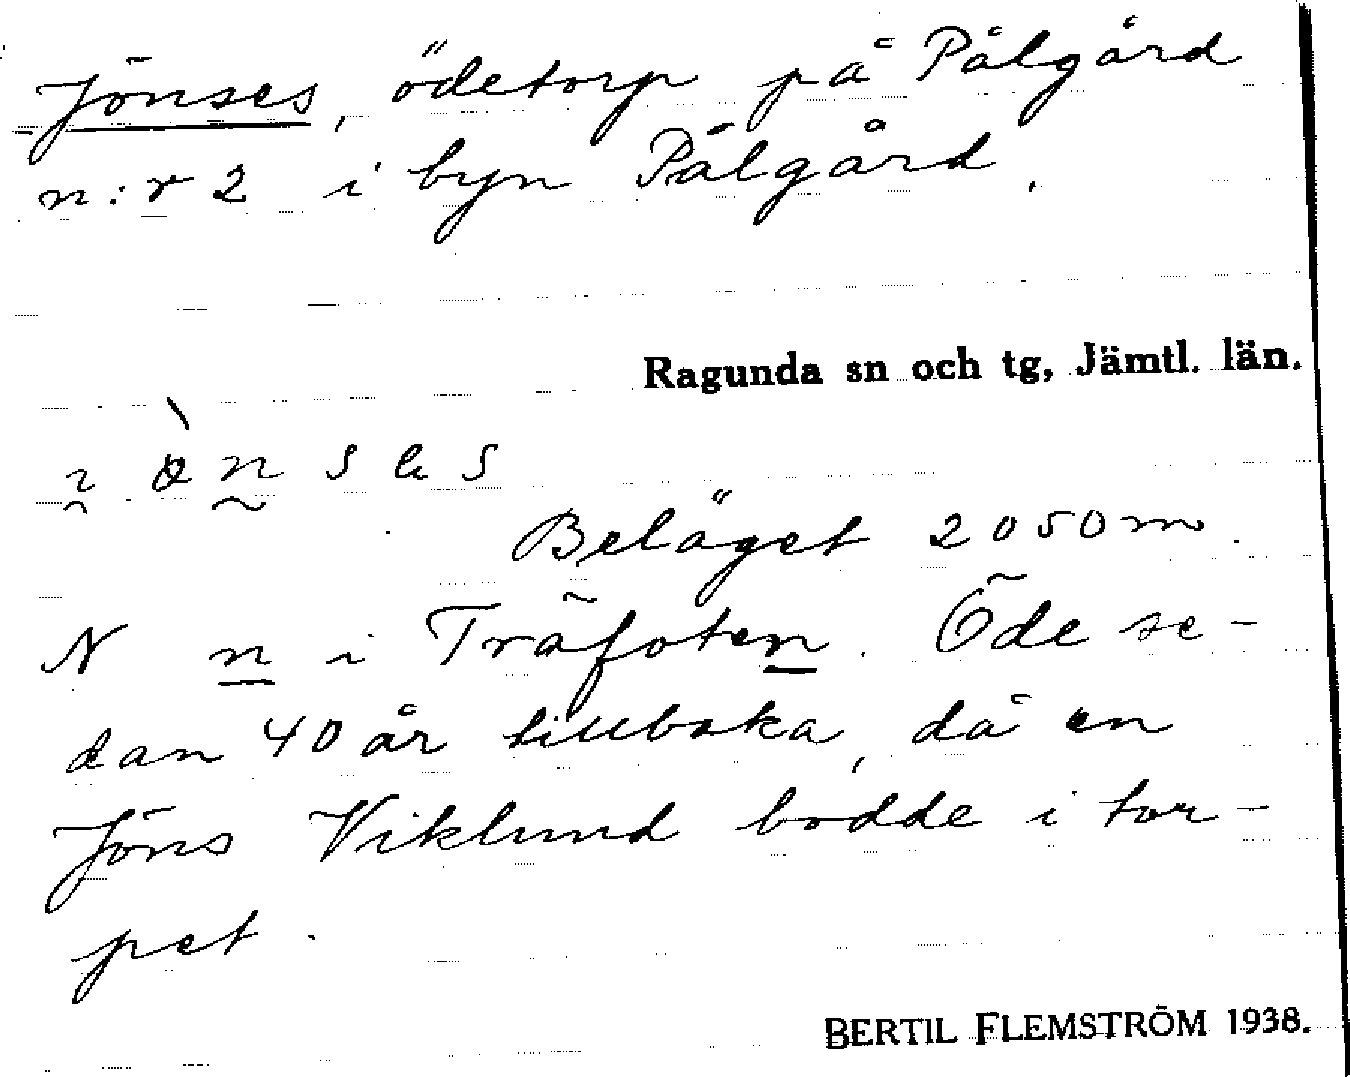 Jönses, ödetorp på Pålgård
n:r 2 i byn Pålgård.
Ragunda sn och tg, Jämtl. län.
Beläget 2050 m
N n i Träfoten. Öde se-
dan 40 år tillbaka, då en
Jöns Viklund bodde i tor-
pet.
BERTIL FLEMSTRÖM 1938.